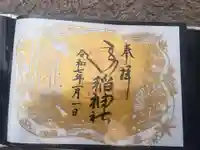 奉拝
稲神社
令和七年二月一日